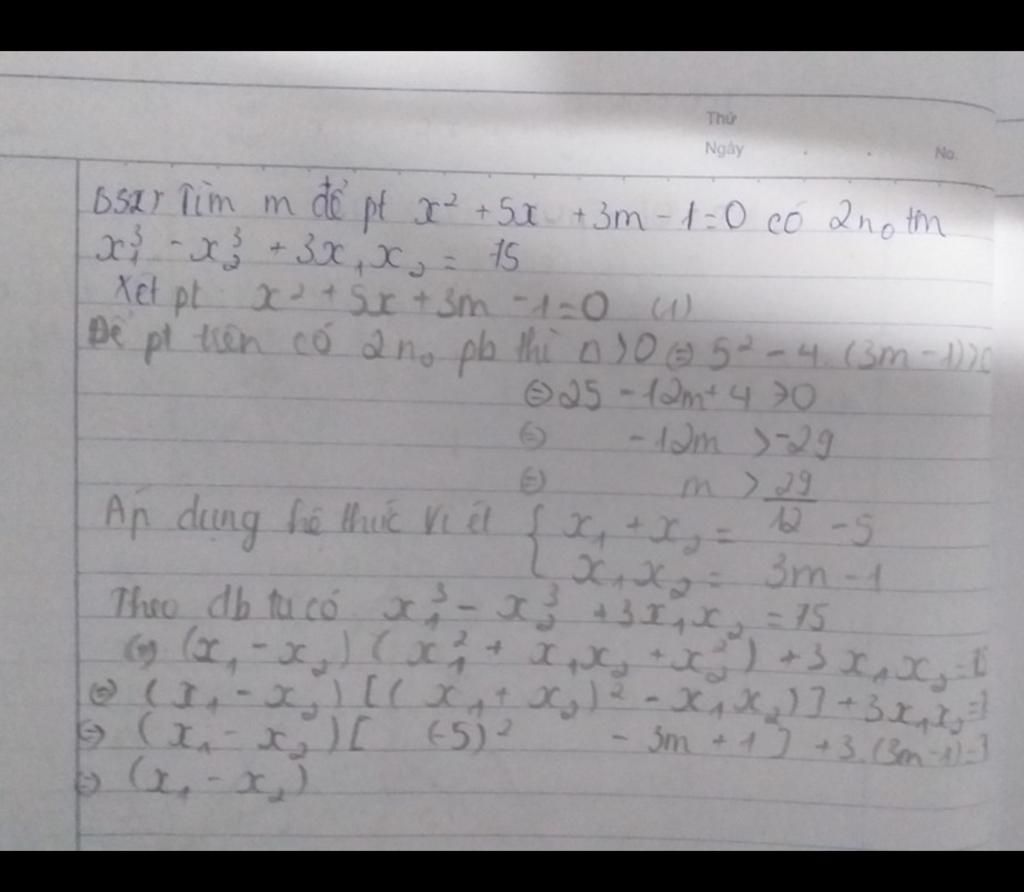 Thứ
Ngày No.
Tìm m để pt x² + 5x + 3m - 1 = 0 có 2n₀ tm
x₁³ - x₂³ + 3x₁x₂ = 75
Xét pt x² + 5x + 3m - 1 = 0 (1)
Để pt trên có 2n₀ pb thì Δ > 0 ⇔ 5² - 4.(3m - 1) > 0
⇔ 25 - 12m + 4 > 0
⇔ - 12m > -29
⇔ m > 29/12
Áp dụng hê thức Vi ét { x₁ + x₂ = - 5
x₁x₂ = 3m - 1
Theo đb ta có x₁³ - x₂³ + 3x₁x₂ = 75
⇔ (x₁ - x₂) (x₁² + x₁x₂ + x₂²) + 3x₁x₂ =
⇔ (x₁ - x₂) [(x₁ + x₂)² - x₁x₂)] + 3x₁x₂ =
⇔ (x₁ - x₂) [ (-5)² - 3m + 1 ] + 3.(3m - 1) =
⇔ (x₁ - x₂)